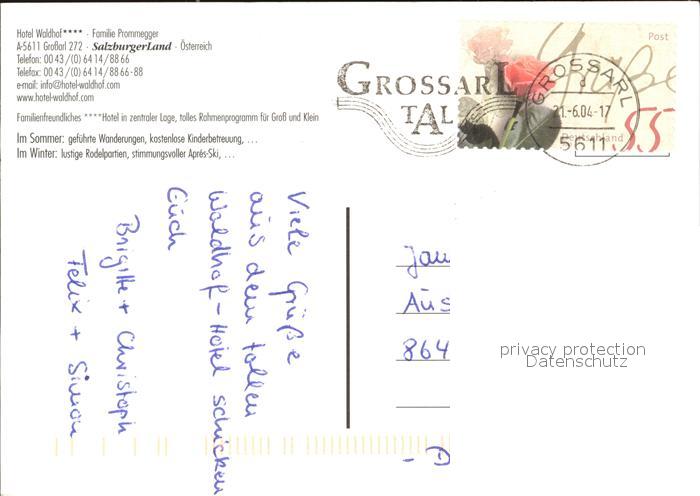 Hotel Waldhof**** · Familie Prommegger
A-5611 Großarl 272 · SalzburgerLand · Österreich
Telefon: 00 43 / (0) 64 14 / 88 66
Telefax: 00 43 / (0) 64 14 / 88 66-88
e-mail: info@hotel-waldhof.com
www.hotel-waldhof.com
Familienfreundliches ****Hotel in zentraler Lage, tolles Rahmenprogramm für Groß und Klein
Im Sommer: geführte Wanderungen, kostenlose Kinderbetreuung, ...
Im Winter: lustige Rodelpartien, stimmungsvoller Après-Ski, ...
GROSSARL
TAL
Post
Grüße
Deutschland
55
GROSSARL
21.-6.04-17
5611
Viele Grüße
aus dem tollen
Waldhof-Hotel schicken
Euch
Brigitte + Christoph
Felix + Simon
Jan
Aus
864
privacy protection
Datenschutz